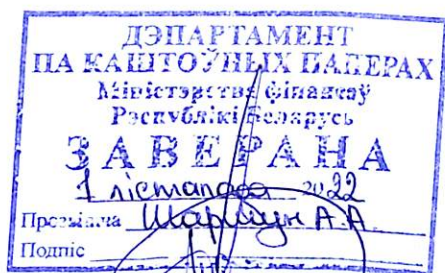 ДЭПАРТАМЕНТ
ПА КАШТОЎНЫХ ПАПЕРАХ
Міністэрства фінансаў
Рэспублікі Беларусь
ЗАВЕРАНА
1 лістапада 2022
Прозвішча А.А.
Подпіс